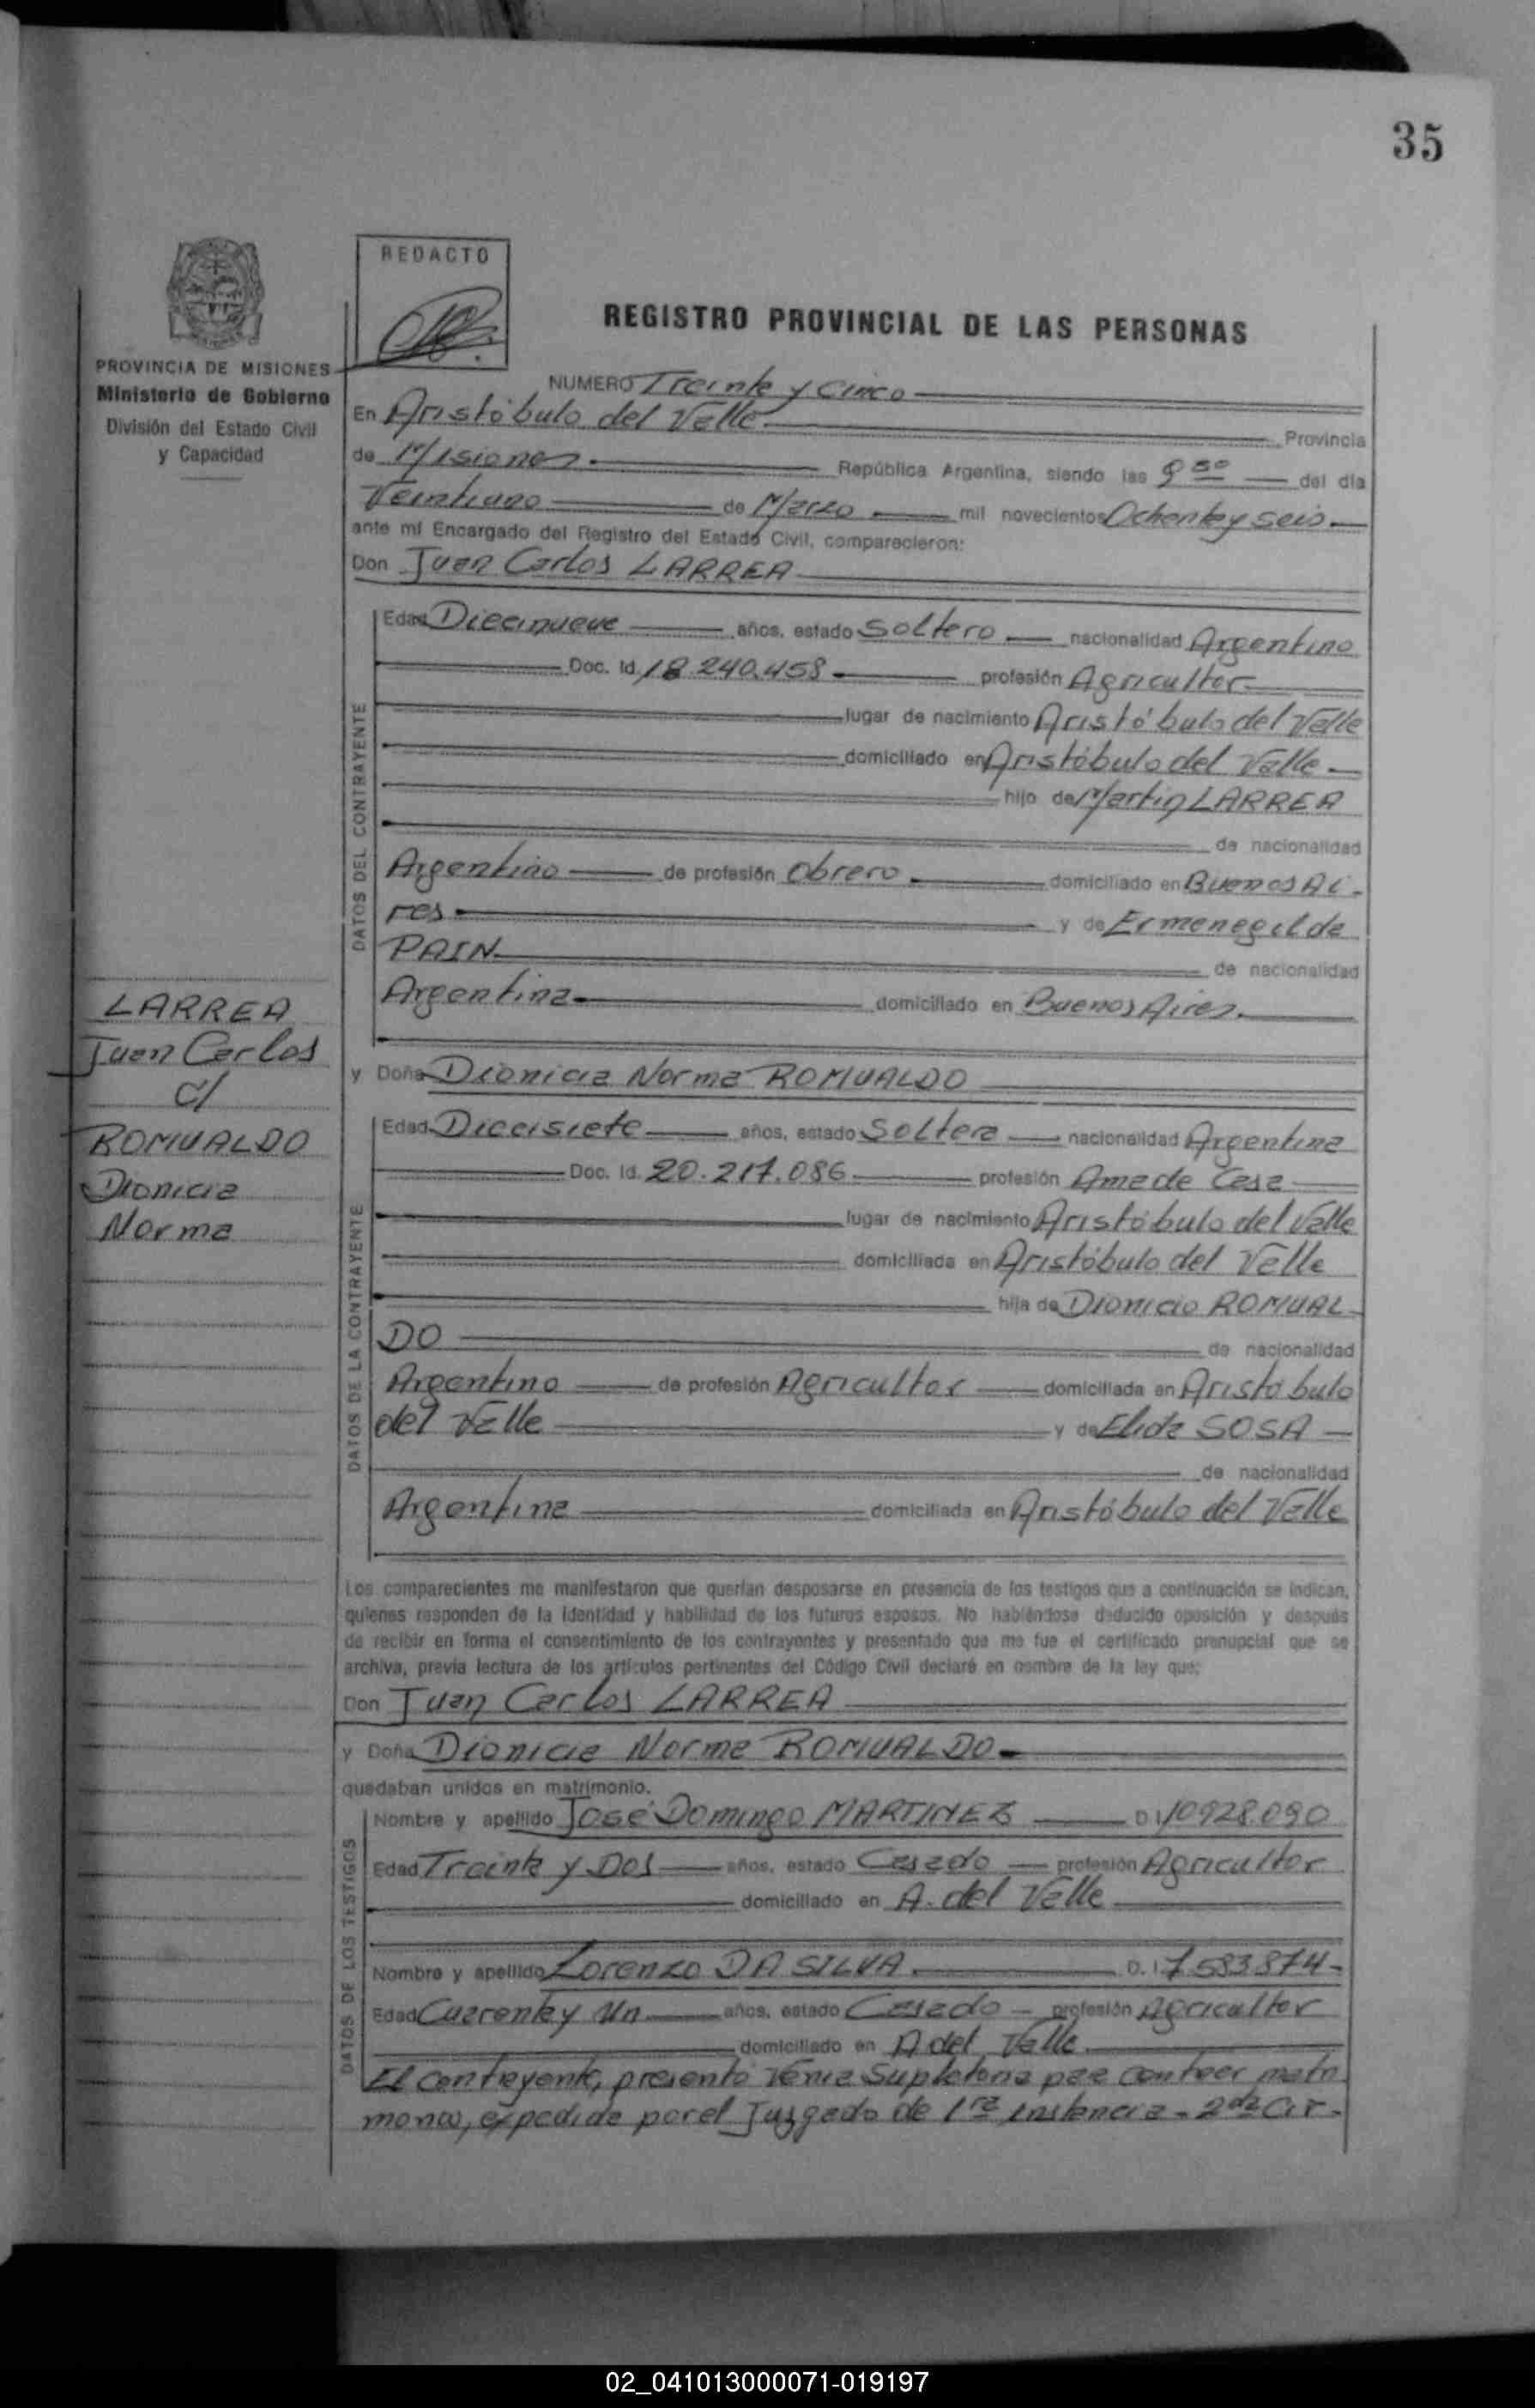 35
REDACTO
REGISTRO PROVINCIAL DE LAS PERSONAS
PROVINCIA DE MISIONES
Ministerio de Gobierno
División del Estado Civil
y Capacidad
NUMERO Treinta y Cinco
En Aristóbulo del Valle Provincia
de Misiones República Argentina, siendo las del día
Veintiuno de Marzo mil novecientos Ochenta y seis
ante mí Encargado del Registro del Estado Civil, comparecieron:
Don Juan Carlos LARREA
DATOS DEL CONTRAYENTE
Edad Diecinueve años, estado Soltero nacionalidad Argentino
Doc. Id. 18.240.458 profesión Agricultor
lugar de nacimiento Aristóbulo del Valle
domiciliado en Aristóbulo del Valle
hijo de Martin LARREA
de nacionalidad
Argentino de profesión Obrero domiciliado en Buenos Ai-
res y de Ermenegilda
PAIN de nacionalidad
Argentina domiciliado en Buenos Aires.
LARREA
Juan Carlos
c/
ROMUALDO
Dionicia
Norma
y Doña Dionicia Norma ROMUALDO
DATOS DE LA CONTRAYENTE
Edad Diecisiete años, estado Soltera nacionalidad Argentina
Doc. Id. 20.217.086 profesión Ama de Casa
lugar de nacimiento Aristóbulo del Valle
domiciliada en Aristóbulo del Valle
hija de Dionicio ROMUAL-
DO de nacionalidad
Argentino de profesión Agricultor domiciliada en Aristóbulo
del Valle y de Elida SOSA
de nacionalidad
Argentina domiciliada en Aristóbulo del Valle
Los comparecientes me manifestaron que querían desposarse en presencia de los testigos que a continuación se indican,
quienes responden de la identidad y habilidad de los futuros esposos. No habiéndose deducido oposición y después
de recibir en forma el consentimiento de los contrayentes y presentado que me fue el certificado prenupcial que se
archiva, previa lectura de los artículos pertinentes del Código Civil declaré en nombre de la ley que:
Don Juan Carlos LARREA
y Doña Dionicia Norma ROMUALDO
quedaban unidos en matrimonio.
DATOS DE LOS TESTIGOS
Nombre y apellido José Domingo MARTINEZ D.I. 10928.090
Edad Treinta y Dos años, estado Casado profesión Agricultor
domiciliado en A. del Valle
Nombre y apellido Lorenzo DA SILVA D.I. 7583874
Edad Cuarenta y Un años, estado Casado profesión Agricultor
domiciliado en A del Valle
El Contrayente, presentó Venia Supletoria para contraer matri
monio, expedida por el Juzgado de 1ra instancia - 2da Cir-
02_041013000071-019197